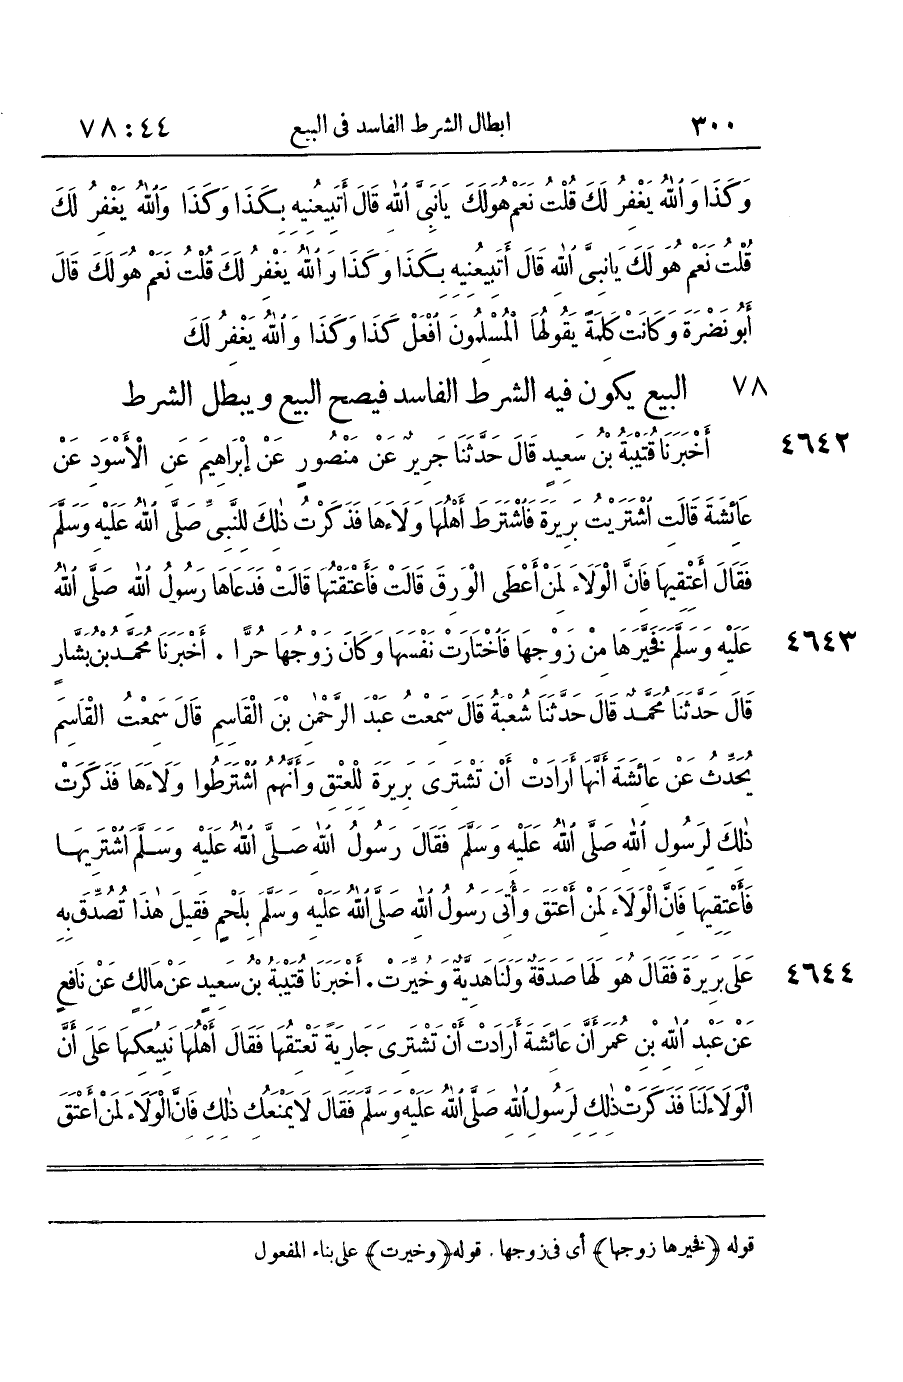 ٣٠٠ ابطال الشرط الفاسد فى البيع ٧٨:٤٤
وَكَذَا وَٱللهُ يَغْفِرُ لَكَ قُلْتُ نَعَمْ هُوَ لَكَ يَانَبِىَّ ٱللهِ قَالَ أَتَبِيعُنِيهِ بِكَذَا وَكَذَا وَٱللهُ يَغْفِرُ لَكَ
قُلْتُ نَعَمْ هُوَ لَكَ يَانَبِىَّ ٱللهِ قَالَ أَتَبِيعُنِيهِ بِكَذَا وَكَذَا وَٱللهُ يَغْفِرُ لَكَ قُلْتُ نَعَمْ هُوَ لَكَ قَالَ
أَبُو نَضْرَةَ وَكَانَتْ كَلِمَةً يَقُولُهَا الْمُسْلِمُونَ افْعَلْ كَذَا وَكَذَا وَٱللهُ يَغْفِرُ لَكَ
٧٨ البيع يكون فيه الشرط الفاسد فيصح البيع ويبطل الشرط
٤٦٤٢ أَخْبَرَنَا قُتَيْبَةُ بْنُ سَعِيدٍ قَالَ حَدَّثَنَا جَرِيرٌ عَنْ مَنْصُورٍ عَنْ إِبْرَاهِيمَ عَنِ الْأَسْوَدِ عَنْ
عَائِشَةَ قَالَتِ ٱشْتَرَيْتُ بَرِيرَةَ فَٱشْتَرَطَ أَهْلُهَا وَلَاءَهَا فَذَكَرْتُ ذٰلِكَ لِلنَّبِىِّ صَلَّى ٱللهُ عَلَيْهِ وَسَلَّمَ
فَقَالَ أَعْتِقِيهَا فَانَّ الْوَلَاءَ لِمَنْ أَعْطَى الْوَرِقَ قَالَتْ فَأَعْتَقْتُهَا قَالَتْ فَدَعَاهَا رَسُولُ ٱللهِ صَلَّى ٱللهُ
٤٦٤٣ عَلَيْهِ وَسَلَّمَ فَخَيَّرَهَا مِنْ زَوْجِهَا فَٱخْتَارَتْ نَفْسَهَا وَكَانَ زَوْجُهَا حُرًّا . أَخْبَرَنَا مُحَمَّدُ بْنُ بَشَّارٍ
قَالَ حَدَّثَنَا مُحَمَّدٌ قَالَ حَدَّثَنَا شُعْبَةُ قَالَ سَمِعْتُ عَبْدَ الرَّحْمٰنِ بْنَ الْقَاسِمِ قَالَ سَمِعْتُ الْقَاسِمَ
يُحَدِّثُ عَنْ عَائِشَةَ أَنَّهَا أَرَادَتْ أَنْ تَشْتَرِىَ بَرِيرَةَ لِلْعِتْقِ وَأَنَّهُمُ ٱشْتَرَطُوا وَلَاءَهَا فَذَكَرَتْ
ذٰلِكَ لِرَسُولِ ٱللهِ صَلَّى ٱللهُ عَلَيْهِ وَسَلَّمَ فَقَالَ رَسُولُ ٱللهِ صَلَّى ٱللهُ عَلَيْهِ وَسَلَّمَ ٱشْتَرِيهَا
فَأَعْتِقِيهَا فَانَّ الْوَلَاءَ لِمَنْ أَعْتَقَ وَأُتِىَ رَسُولُ ٱللهِ صَلَّى ٱللهُ عَلَيْهِ وَسَلَّمَ بِلَحْمٍ فَقِيلَ هٰذَا تُصُدِّقَ بِهِ
٤٦٤٤ عَلَى بَرِيرَةَ فَقَالَ هُوَ لَهَا صَدَقَةٌ وَلَنَا هَدِيَّةٌ وَخُيِّرَتْ . أَخْبَرَنَا قُتَيْبَةُ بْنُ سَعِيدٍ عَنْ مَالِكٍ عَنْ نَافِعٍ
عَنْ عَبْدِ ٱللهِ بْنِ عُمَرَ أَنَّ عَائِشَةَ أَرَادَتْ أَنْ تَشْتَرِىَ جَارِيَةً تَعْتِقُهَا فَقَالَ أَهْلُهَا نَبِيعُكِهَا عَلَى أَنَّ
الْوَلَاءَ لَنَا فَذَكَرَتْ ذٰلِكَ لِرَسُولِ ٱللهِ صَلَّى ٱللهُ عَلَيْهِ وَسَلَّمَ فَقَالَ لَا يَمْنَعُكِ ذٰلِكَ فَانَّ الْوَلَاءَ لِمَنْ أَعْتَقَ
قوله ﴿فخيرها زوجها﴾ أى فى زوجها . قوله ﴿وخيرت﴾ على بناء المفعول